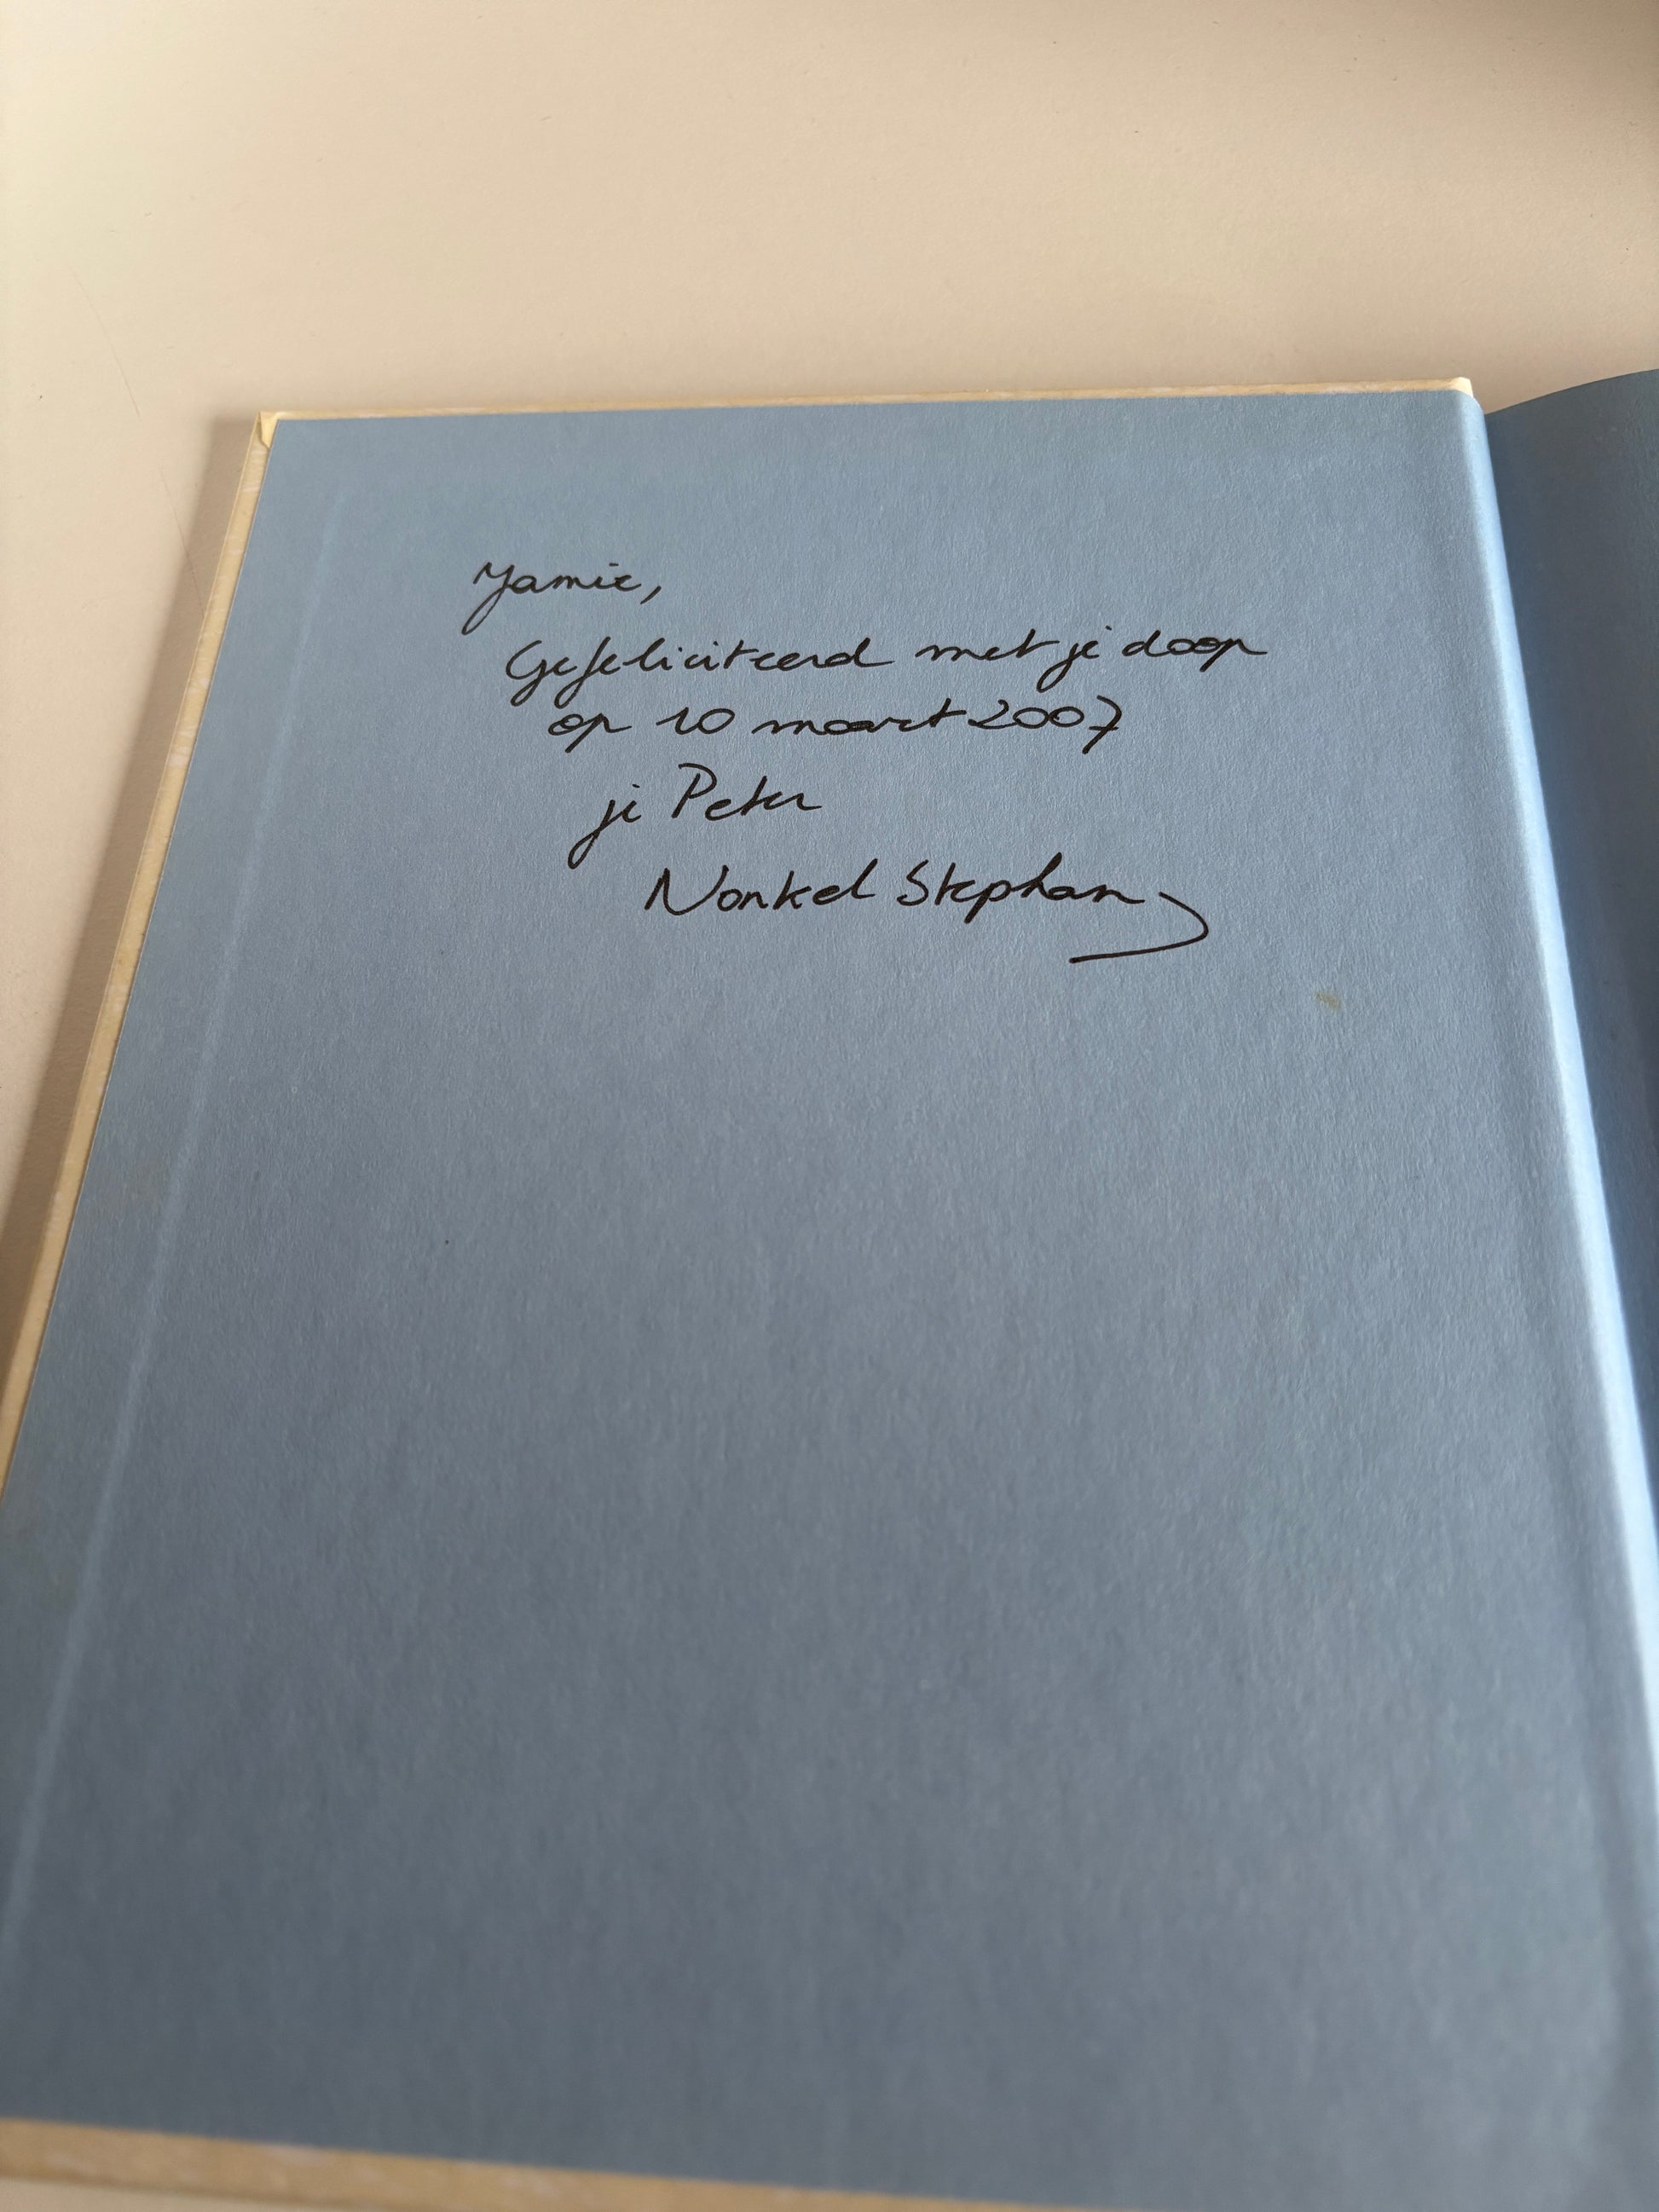 Yamie,
Gefeliciteerd met je doop
op 10 maart 2007
je Peter
Nonkel Stephan